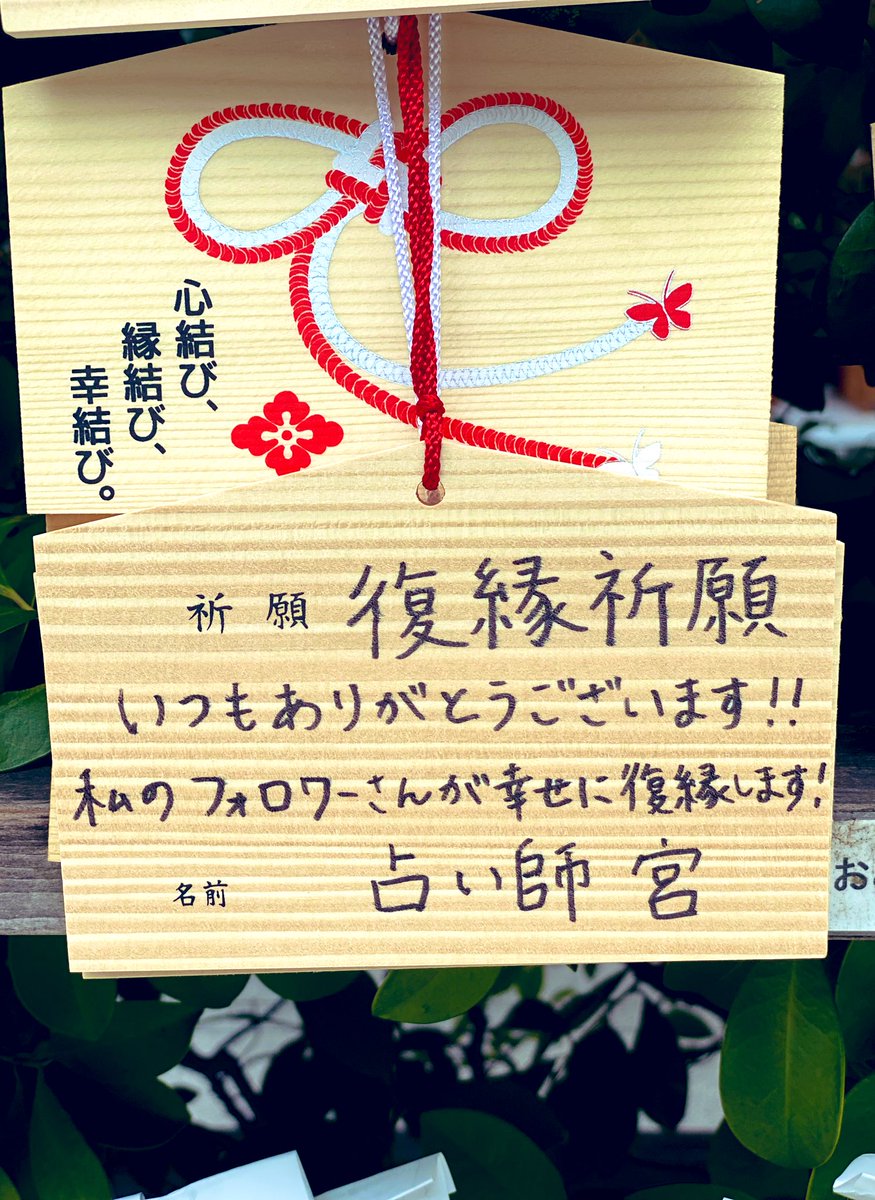 心結び、
縁結び、
幸結び。
祈願 復縁祈願
いつもありがとうございます!!
私のフォロワーさんが幸せに復縁します!
名前 占い師 宮
お